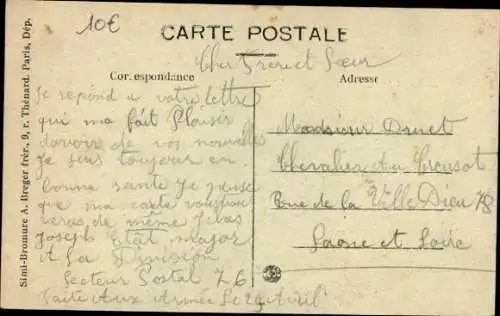 10€
CARTE POSTALE
Cher Frere et Sœur
Correspondance
Adresse
Je repond a votre lettre
qui ma fait Plaisir
davoir de vos nouvelles
je suis toujour en
bonne sante Je pense
que ma carte vous
de même
Joseph État major
de La Division
Secteur Postal 76
Faite Aux Armée Le 29 Avril
Monsieur Druet
Chevalier Au Creusot
Rue de la Ville Dieu 78
Saone et Loire
Simi-Bromure A. Breger frér., 9, r. Thénard. Paris, Dép.